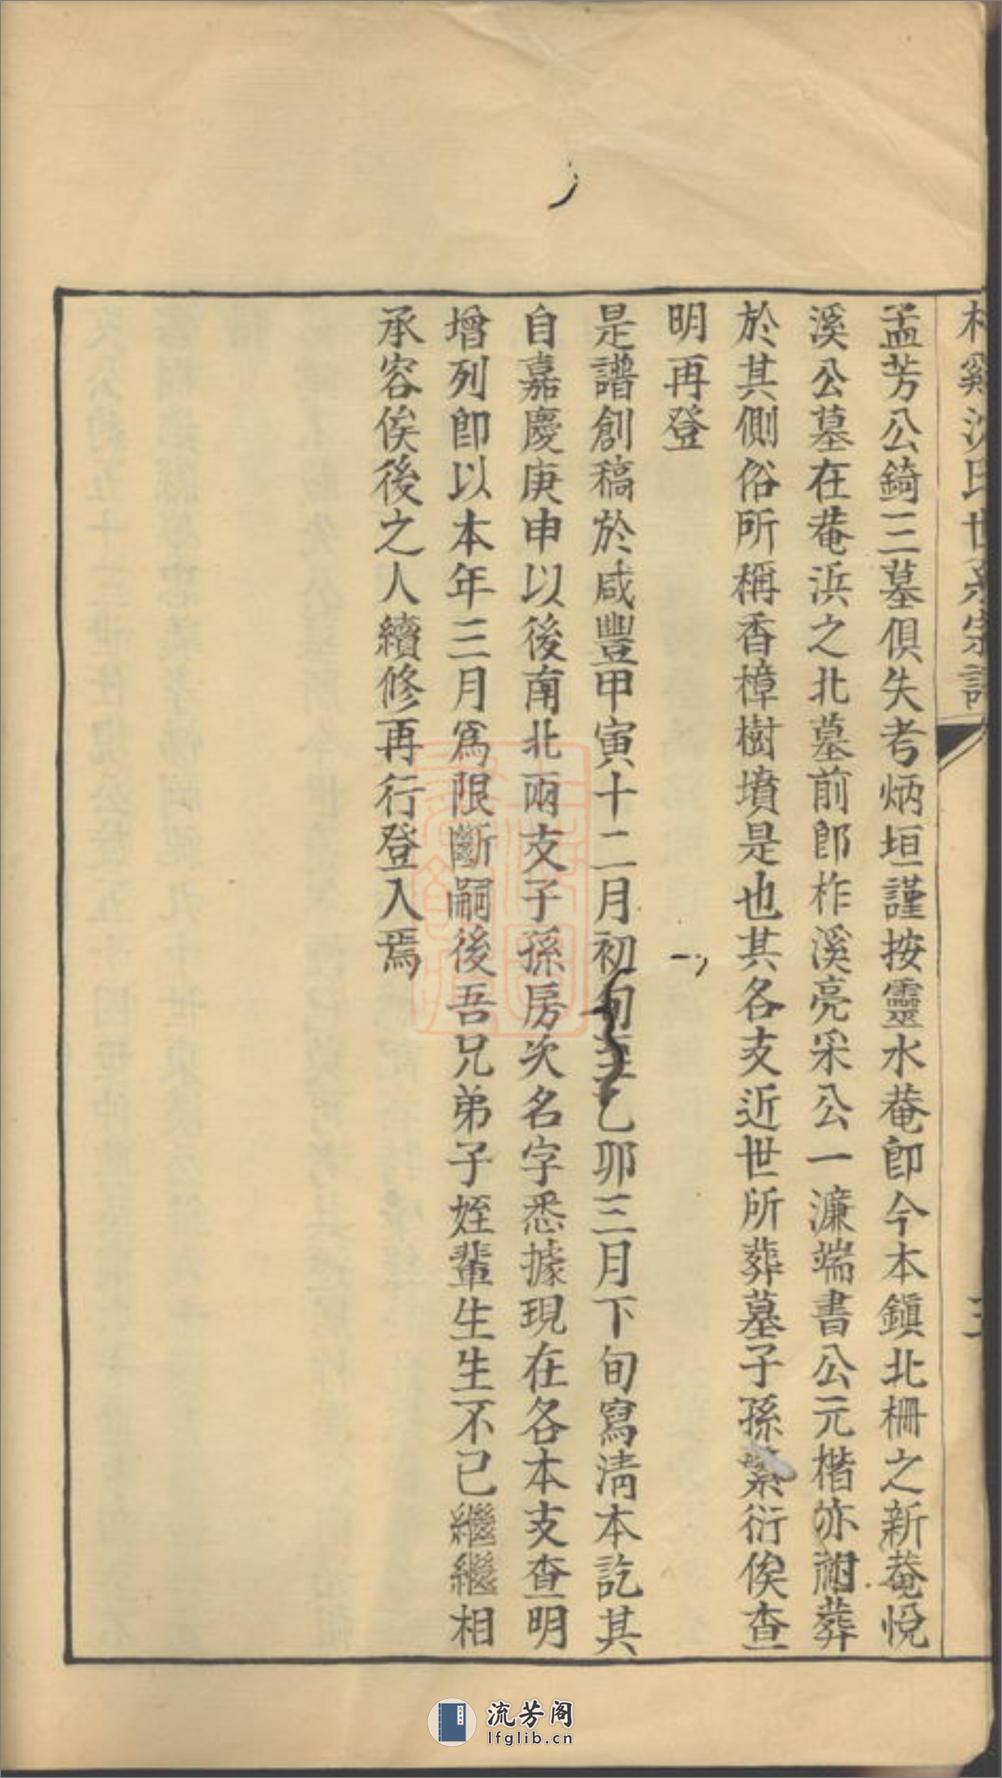 柞溪沈氏世系宗譜
孟芳公錡三墓俱失考炳垣謹按靈水菴卽今本鎭北柵之新菴悅
溪公墓在菴浜之北墓前卽柞溪亮采公一濂端書公元楷亦祔葬
於其側俗所稱香樟樹墳是也其各支近世所葬墓子孫繁衍俟查
明再登
是譜創稿於咸豐甲寅十二月初旬至乙卯三月下旬寫淸本訖其
自嘉慶庚申以後南北兩支子孫房次名字悉據現在各本支查明
增列卽以本年三月爲限斷嗣後吾兄弟子姪輩生生不已繼繼相
承容俟後之人續修再行登入焉
流芳阁
lfglib.cn